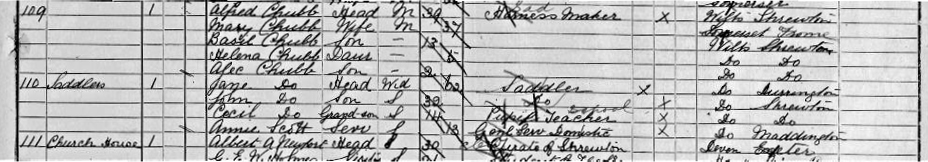 Somerset
109 1 Alfred Chubb Head M 39 Harness Maker X Wilts Shrewton
Mary Chubb Wife M 37 Somerset Frome
Basil Chubb Son — 13 Wilts Shrewton
Helena Chubb Daur — 5 Do Do
Alec Chubb Son — 2 Do Do
110 Saddlers 1 Jane Do Head Wid 62 Saddler X Do Durrington
John Do Son S 32 Do X Do Shrewton
Cecil Do Grandson S 14 Pupil Teacher X Do Do
Annie Scott Serv S 13 Genl Serv Domestic X Do Maddington
111 Church House 1 Head S 30 Curate of Shrewton Devon Exeter